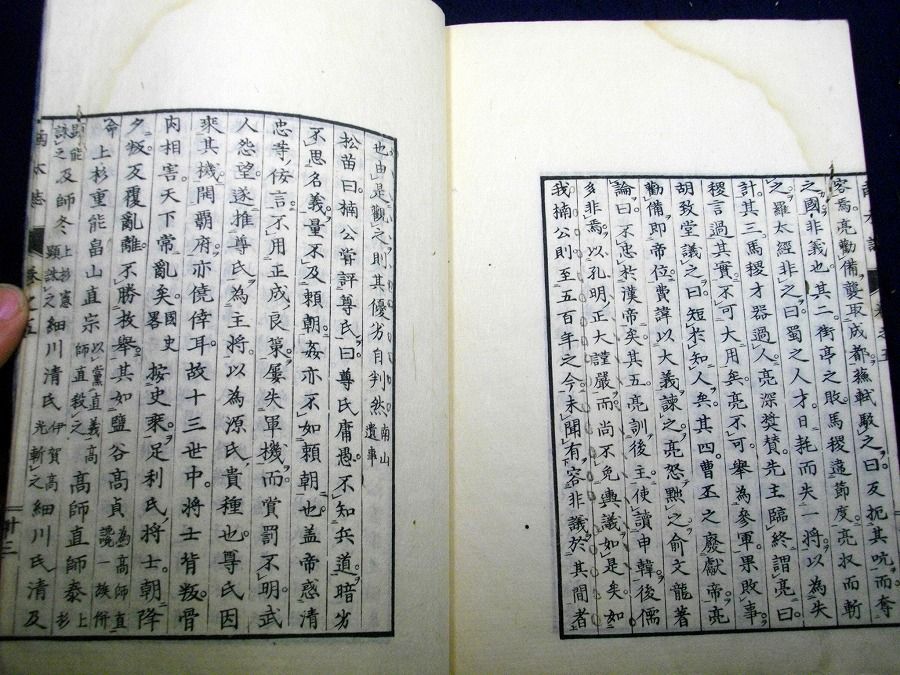 容焉。亮勸備襲取成都。蘇軾駁之曰。反扼其吭。而奪
之國。非義也。其二街亭之敗。馬稷違節度。亮收而斬
之。羅太經非之曰。蜀之人才。日耗而失一將。以為失
計。其三馬稷才器過人。亮深奬賛。先主臨終謂亮曰。
稷言過其實。不可大用矣。亮不可舉為參軍果敗事。
胡致堂議之曰。短於知人矣。其四曹丕之廢獻帝。亮
勸備即帝位。費諱以大義諫之。亮怒黜之。俞文龍著
論曰。不忠於漢帝矣。其五亮訓後主。使讀申韓。後儒
多非焉。以孔明正大謹嚴。而尚不免輿議如是矣。如
我楠公則至五百年之今。未聞有容非議於其間者
也。由是觀之。則其優劣自判然。南山遺事
松苗曰。楠公嘗評尊氏曰。尊氏庸愚。不知兵道。暗劣
不思名義。量不及賴朝。姦亦不如賴朝也。盖帝惑清
忠等侫言。不用正成良策。屡失軍機。而賞罰不明。武
人怨望。遂推尊氏為主將。以為源氏貴種也。尊氏因
乘其機。開覇府。亦僥倖耳。故十三世中。將士背叛。骨
肉相害。天下常亂矣。畧國史 按史乘。足利氏將士。朝降
夕叛。反覆亂離。不勝枚舉。其如鹽谷高貞為高師直讒一族併
命上杉重能畠山直宗以黨直義高師直殺之高師直師泰上杉
能誅之及師冬上杉憲顯誅之細川清氏伊賀高光斬之細川氏清及
楠木誌 卷之五
十三